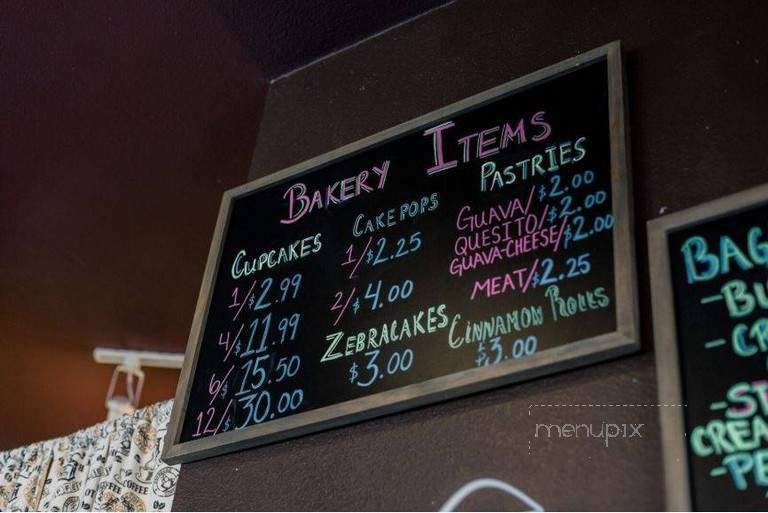 BAKERY ITEMS
CUPCAKES
1/$2.99
4/$11.99
6/$15.50
12/$30.00
CAKE POPS
1/$2.25
2/$4.00
ZEBRACAKES
$3.00
PASTRIES
GUAVA/$2.00
QUESITO/$2.00
GUAVA-CHEESE/$2.00
MEAT/$2.25
CINNAMON ROLLS
$3.00
BAG
-BU
-CR
-ST
CREA
-PE
COFFEE
menupix